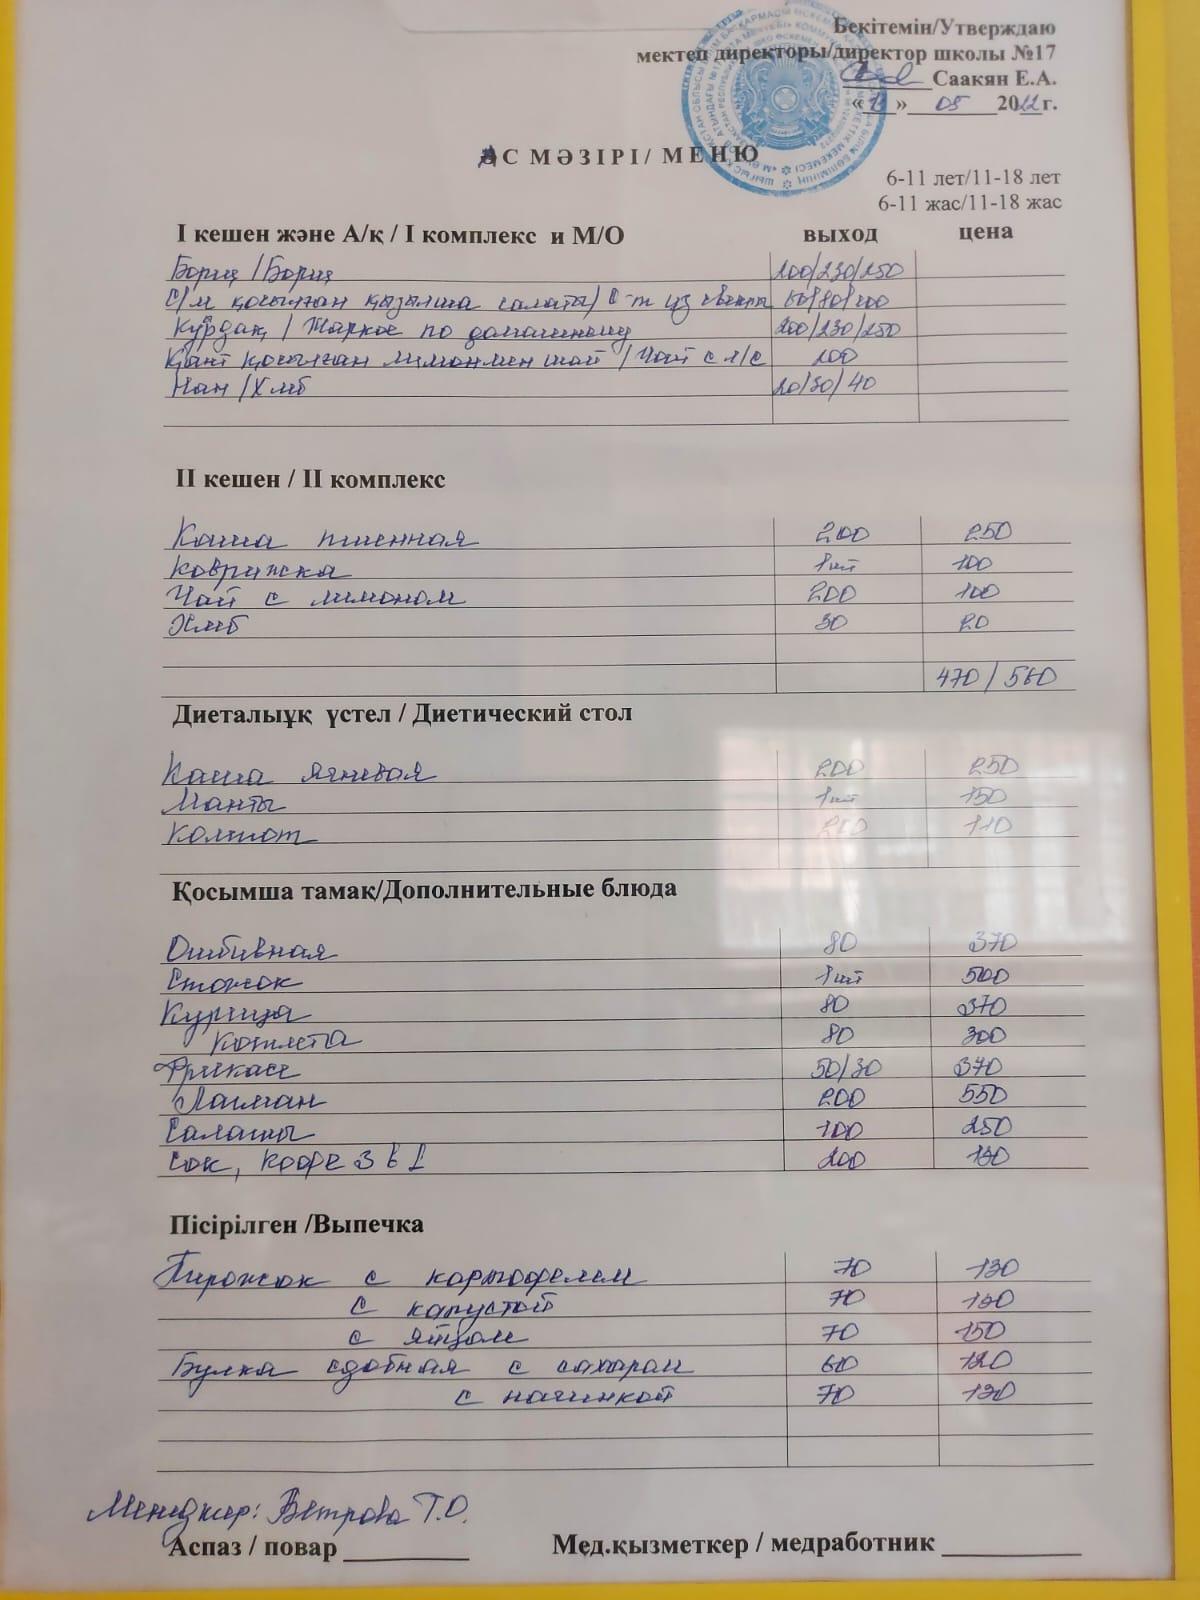 Бекітемін/Утверждаю
мектеп директоры/директор школы №17
Саакян Е.А.
« » 05 2022г.
АС МӘЗІРІ/ МЕНЮ
6-11 лет/11-18 лет
6-11 жас/11-18 жас
I кешен және А/қ / I комплекс и М/О выход цена
Борщ / Борщ 200/230/250
С/м қосылған қызылша салаты/ С-т из свеклы 60/80/100
Қуырдақ / Жаркое по домашнему 200/230/250
Қант қосылған лимонмен шай / Чай с л/с 200
Нан / Хлеб 20/30/40
II кешен / II комплекс
Каша пшенная 200 250
Коврижка 1шт 100
Чай с лимоном 200 100
Хлеб 30 20
470 / 560
Диеталыұқ үстел / Диетический стол
Каша ячневая 200 250
Манты 1шт 150
Компот 200 110
Қосымша тамақ/Дополнительные блюда
Отбивная 80 370
Стожок 1шт 500
Курица 80 370
Котлета 80 300
Фрикасе 50/30 370
Лагман 200 550
Салаты 100 250
Сок, кофе 3 в 1 200
Пісірілген /Выпечка
Пирожок с картофелем 70 130
с капустой 70 130
с яйцом 70 150
Булка сдобная с сахаром 60 120
с начинкой 70 130
Менеджер: Ветрова Т.О.
Аспаз / повар Мед.қызметкер / медработник